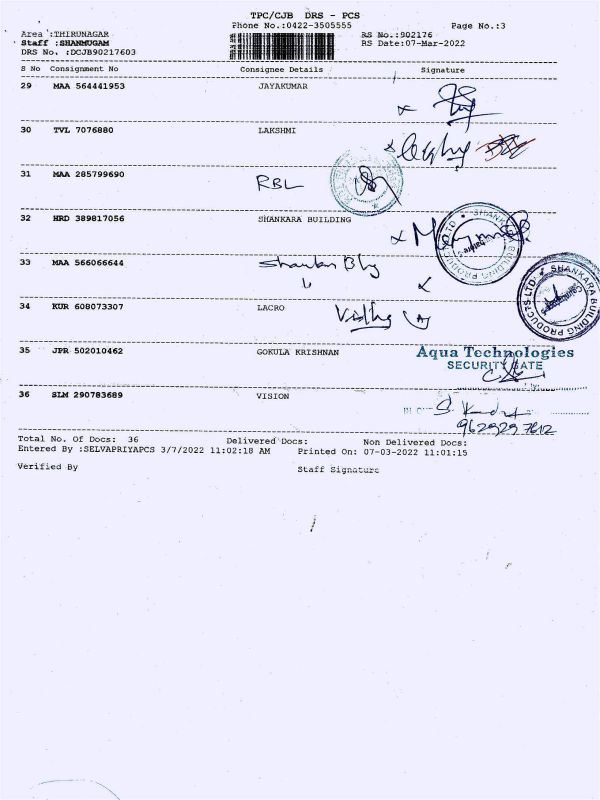 TPC/CJB DRS - PCS
Phone No.:0422-3505555 Page No.:3
Area :THIRUNAGAR RS No.:902176
Staff :SHANMUGAM RS Date:07-Mar-2022
DRS No. :DCJB90217603
S No Consignment No Consignee Details Signature
29 MAA 564441953 JAYAKUMAR
30 TVL 7076880 LAKSHMI
31 MAA 285799690 RBL
32 HRD 389817056 SHANKARA BUILDING
SHANKARA BUILDING PRODUCTS LTD
33 MAA 566066644
SHANKARA BUILDING PRODUCTS LTD
34 KUR 608073307 LACRO
35 JPR 502010462 GOKULA KRISHNAN
Aqua Technologies
SECURITY GATE
36 SLM 290783689 VISION
Total No. Of Docs: 36 Delivered Docs: Non Delivered Docs:
Entered By :SELVAPRIYAPCS 3/7/2022 11:02:18 AM Printed On: 07-03-2022 11:01:15
Verified By Staff Signature